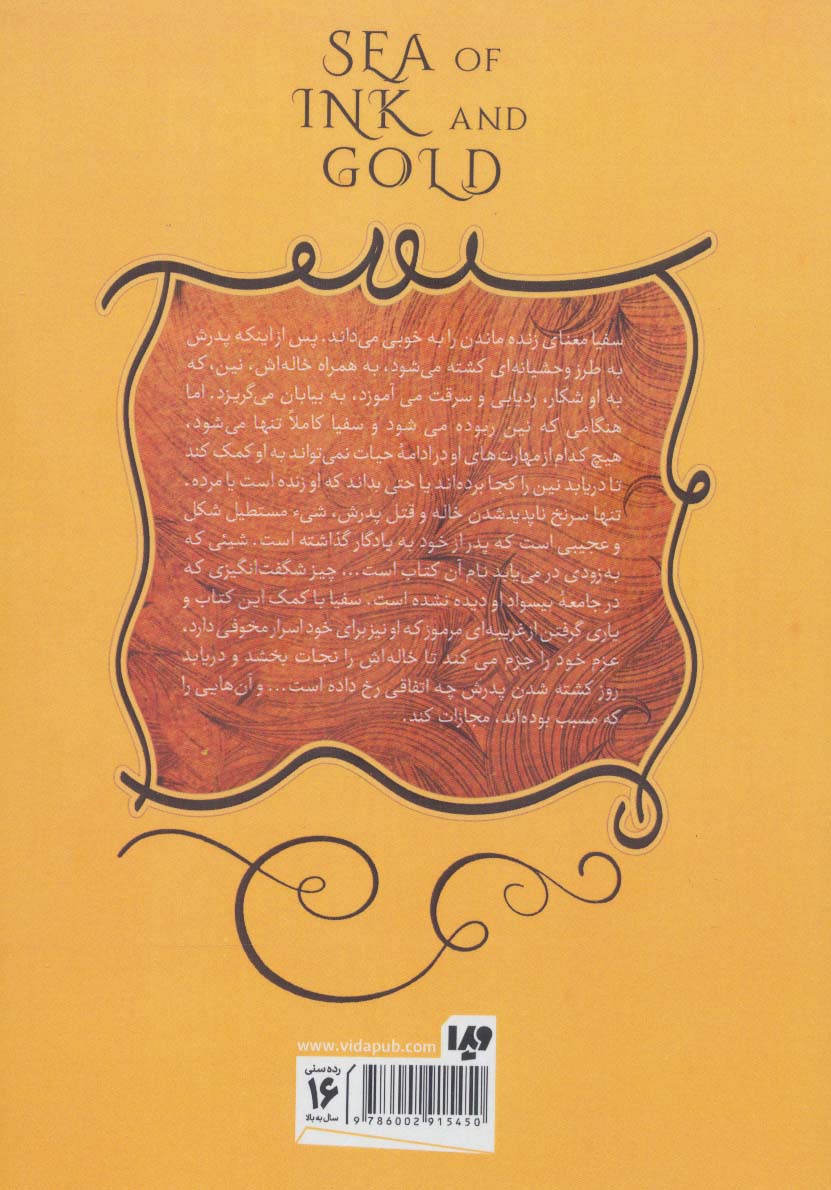 SEA OF
INK AND
GOLD
سفیا معنای زنده ماندن را به خوبی می‌داند. پس از اینکه پدرش
به طرز وحشیانه‌ای کشته می‌شود، به همراه خاله‌اش، نین، که
به او شکار، ردیابی و سرقت می آموزد، به بیابان می‌گریزد. اما
هنگامی که نین ربوده می شود و سفیا کاملاً تنها می‌شود،
هیچ کدام از مهارت‌های او در ادامهٔ حیات نمی‌تواند به او کمک کند
تا دریابد نین را کجا برده‌اند یا حتی بداند که او زنده است یا مرده.
تنها سرنخ ناپدیدشدن خاله و قتل پدرش، شیء مستطیل شکل
و عجیبی است که پدر از خود به یادگار گذاشته است. شیئی که
به‌زودی در می‌یابد نام آن کتاب است... چیز شگفت‌انگیزی که
در جامعهٔ بیسواد او دیده نشده است. سفیا با کمک این کتاب و
یاری گرفتن از غریبه‌ای مرموز که او نیز برای خود اسرار مخوفی دارد،
عزم خود را جزم می کند تا خاله‌اش را نجات بخشد و دریابد
روز کشته شدن پدرش چه اتفاقی رخ داده است... و آن‌هایی را
که مسبب بوده‌اند، مجازات کند.
www.vidapub.com ویدا
رده سنی
۱۶
سال به بالا
9 786002 915450